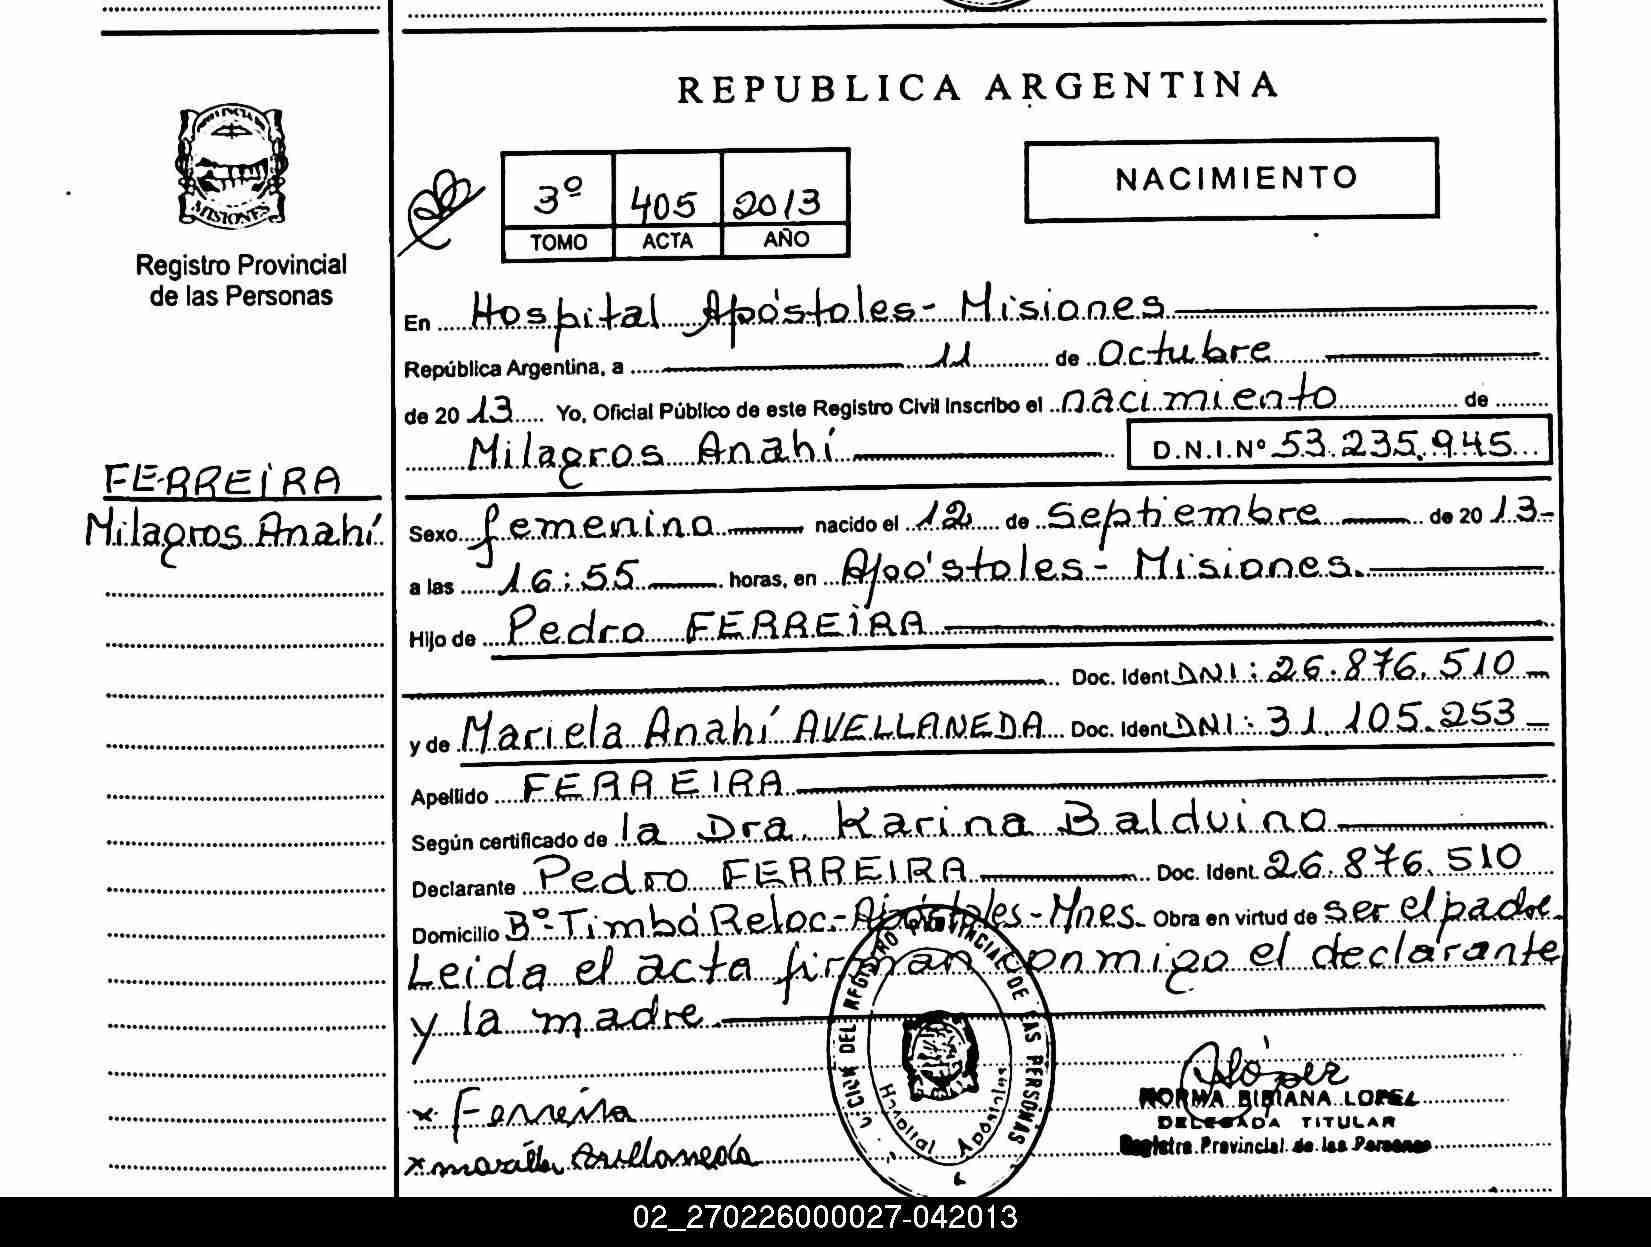 REPUBLICA ARGENTINA
PROVINCIA DE
MISIONES
Registro Provincial
de las Personas
3º 405 2013
TOMO ACTA AÑO
NACIMIENTO
En Hospital Apóstoles - Misiones
República Argentina, a 11 de Octubre
de 2013 Yo, Oficial Público de este Registro Civil Inscribo el nacimiento de
Milagros Anahí D.N.I.Nº 53.235.945
FERREIRA
Milagros Anahí
Sexo femenino nacido el 12 de Septiembre de 2013-
a las 16:55 horas, en Apóstoles - Misiones.
Hijo de Pedro FERREIRA
Doc. Ident DNI: 26.876.510
y de Mariela Anahí AVELLANEDA Doc. Ident DNI: 31.105.253
Apellido FERREIRA
Según certificado de la Dra. Karina Balduino
Declarante Pedro FERREIRA Doc. Ident. 26.876.510
Domicilio Bº Timbó Reloc.- Apóstoles - Mnes. Obra en virtud de ser el padre.
Leida el acta firman conmigo el declarante
y la madre.
DEL REGISTRO PROVINCIAL DE LAS PERSONAS
Hospital Apóstoles
López
NORMA BIBIANA LOPEZ
DELEGADA TITULAR
Registro Provincial de las Personas
x Ferreira
x mariela Avellaneda
02_270226000027-042013